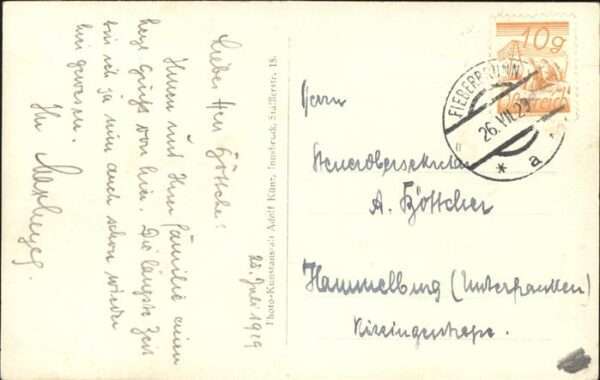 Lieber Herr Böttcher!
Ihnen und Ihrer Familie einen
herzl. Gruß von hier. Die längste Zeit
bin ich ja nun auch schon wieder
hier gewesen.
Ihr
25. Juli 1929
Photo-Kunstanstalt Adolf Künz, Innsbruck, Stafflerstr. 18.
10 g
Österreich
FIEBERBRUNN
26. VII. 29
* a
Herrn
Steuerobersekretär
A. Böttcher
Hammelburg (Unterfranken)
Kissingerstrasse.